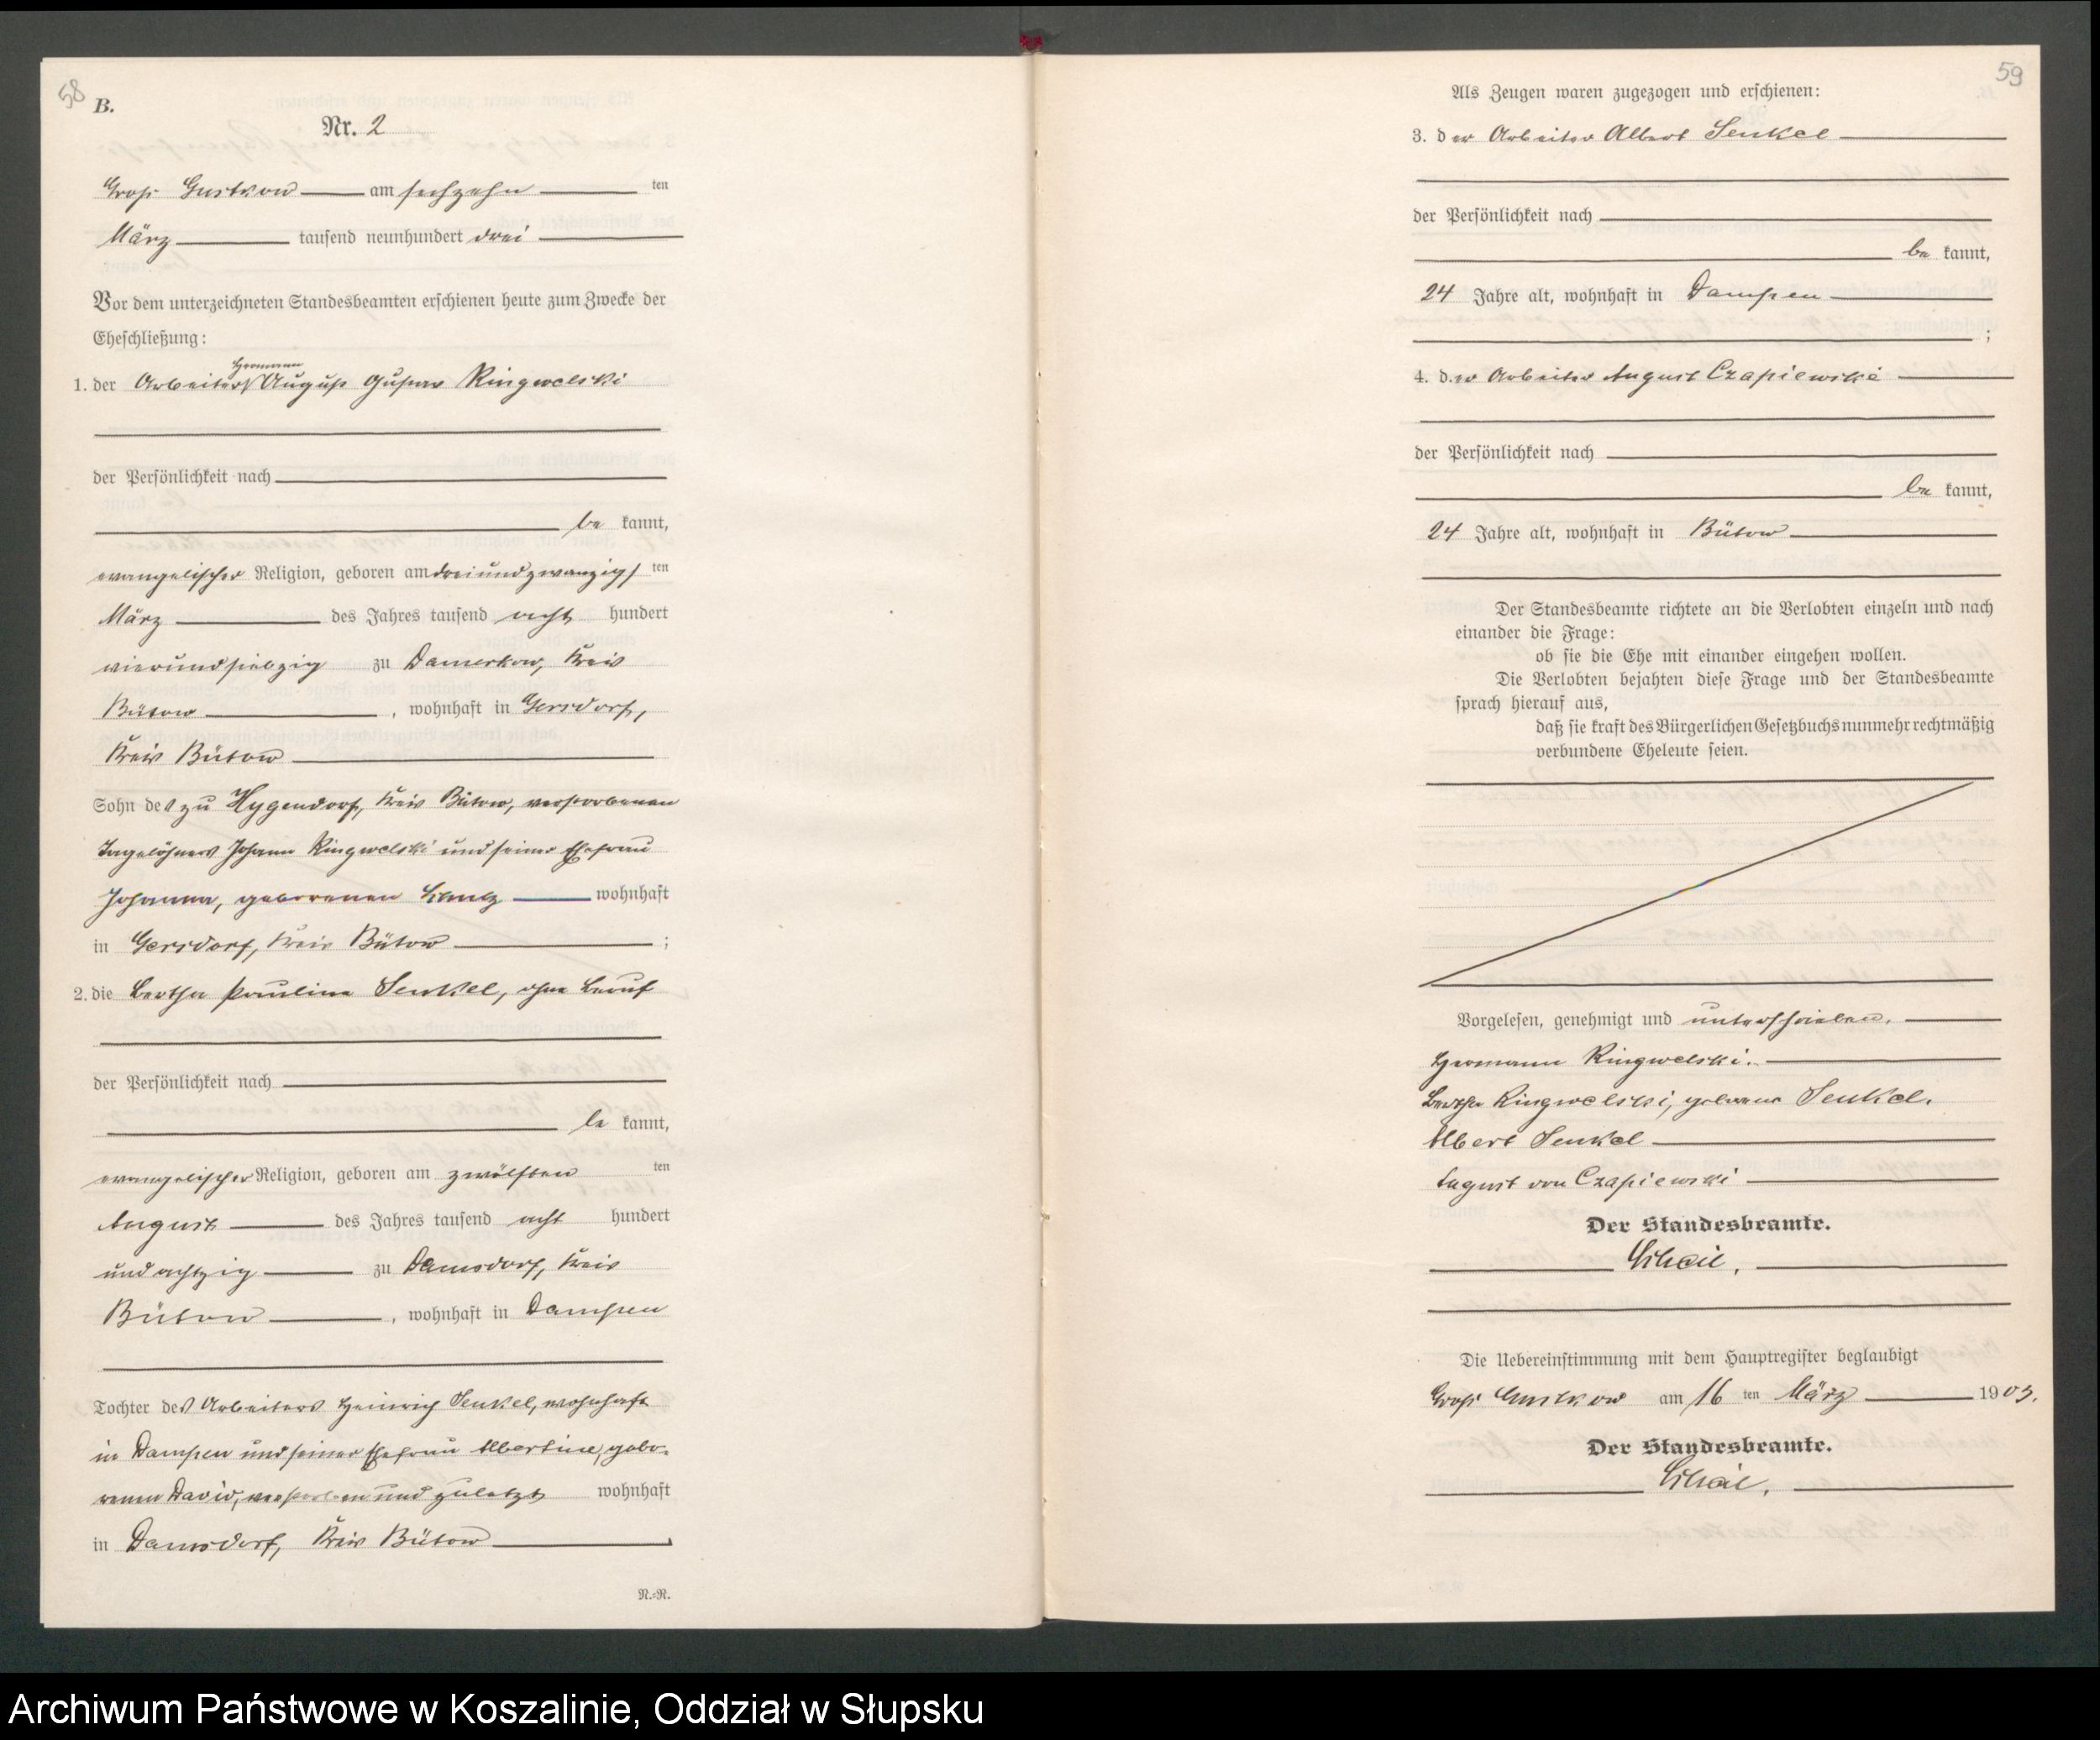 58
B.
Nr. 2
Groß Gustkow am sechzehn ten
März tausend neunhundert drei
Vor dem unterzeichneten Standesbeamten erschienen heute zum Zwecke der
Eheschließung:
Hermann
1. der Arbeiter August Gustav Ringwelski
der Persönlichkeit nach
be kannt,
evangelischer Religion, geboren am dreiundzwanzig ten
März des Jahres tausend acht hundert
vierundsiebzig zu Damerkow, Kreis
Bütow, wohnhaft in Gersdorf,
Kreis Bütow
Sohn des zu Hygendorf, Kreis Bütow, verstorbenen
Tagelöhners Johann Ringwelski und seiner Ehefrau
Johanna, geborenen wohnhaft
in Gersdorf, Kreis Bütow;
2. die Bertha Pauline Senkel, ohne Beruf
der Persönlichkeit nach
be kannt,
evangelischer Religion, geboren am zwölften ten
August des Jahres tausend acht hundert
und achtzig zu Damsdorf, Kreis
Bütow, wohnhaft in Dampen
Tochter des Arbeiters Heinrich Senkel, wohnhaft
in Dampen und seiner Ehefrau Albertine, gebo-
renen David, verstorben und zuletzt wohnhaft
in Damsdorf, Kreis Bütow
N.=R.
59
Als Zeugen waren zugezogen und erschienen:
3. der Arbeiter Albert Senkel
der Persönlichkeit nach
be kannt,
24 Jahre alt, wohnhaft in Dampen
;
4. der Arbeiter August Czapiewski
der Persönlichkeit nach
be kannt,
24 Jahre alt, wohnhaft in Bütow
Der Standesbeamte richtete an die Verlobten einzeln und nach
einander die Frage:
ob sie die Ehe mit einander eingehen wollen.
Die Verlobten bejahten diese Frage und der Standesbeamte
sprach hierauf aus,
daß sie kraft des Bürgerlichen Gesetzbuchs nunmehr rechtmäßig
verbundene Eheleute seien.
Vorgelesen, genehmigt und unterschrieben.
Hermann Ringwelski.
Bertha Ringwelski, geborene Senkel.
Albert Senkel
August von Czapiewski
Der Standesbeamte.
Die Uebereinstimmung mit dem Hauptregister beglaubigt
Groß Gustkow am 16 ten März 1903.
Der Standesbeamte.
Archiwum Państwowe w Koszalinie, Oddział w Słupsku